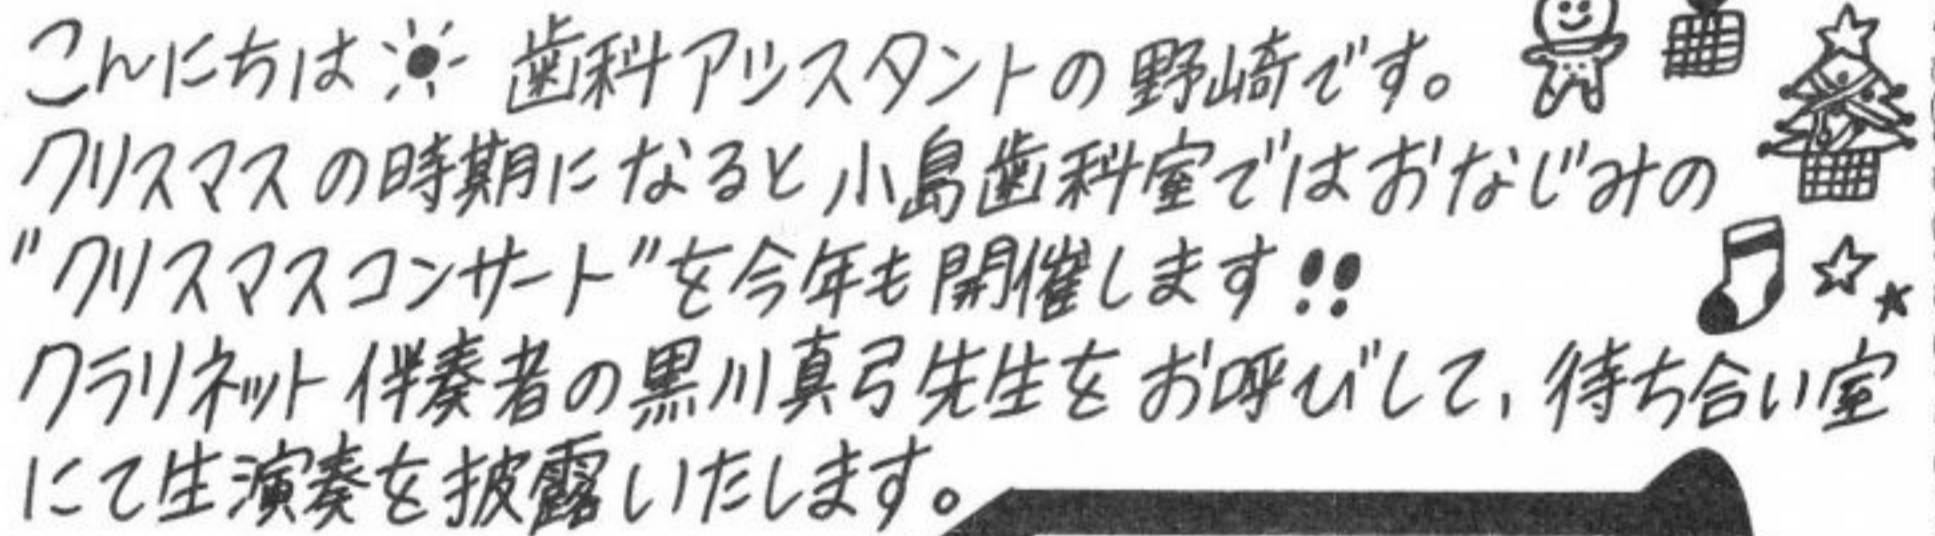 こんにちは☀ 歯科アシスタントの野崎です。
クリスマスの時期になると小島歯科室ではおなじみの
"クリスマスコンサート"を今年も開催します!!
クラリネット伴奏者の黒川真弓先生をお呼びして、待ち合い室
にて生演奏を披露いたします。